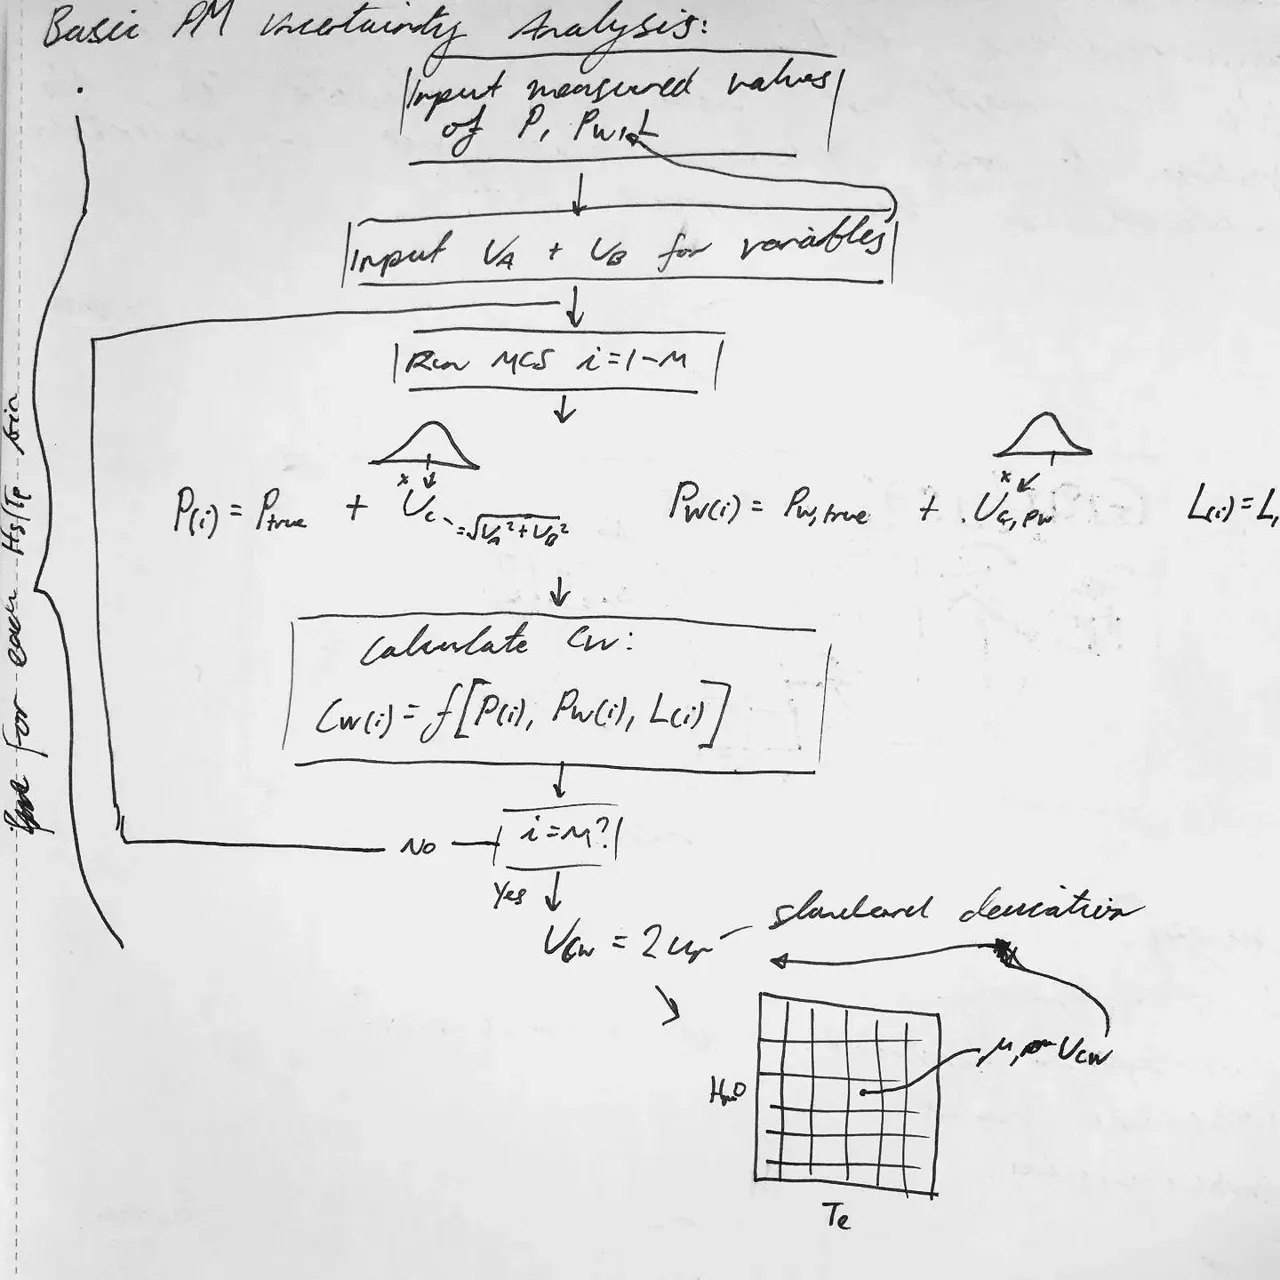 Basic PM Uncertainty Analysis:
Input measured values
of P, Pw, L
Input UA + UB for variables
Run MCS i=1-M
P(i) = Ptrue + Uc
=√UA²+UB²
Pw(i) = Pw,true + Uc,Pw
L(i) = L
Calculate Cw:
Cw(i) = f[P(i), Pw(i), L(i)]
i=M?
No
Yes
UCw = 2
standard deviation
μ, UCw
Hm0
Te
For each Hs/Tp bin